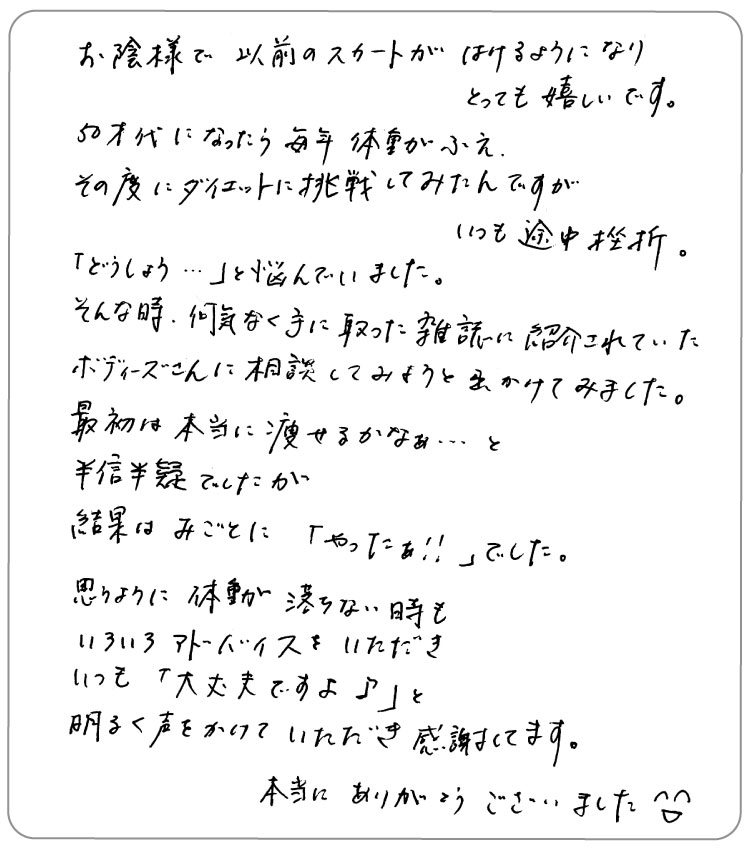 お陰様で 以前のスカートが はけるようになり
とっても嬉しいです。
50才代になったら毎年 体重がふえ、
その度にダイエットに挑戦してみたんですが
いつも途中挫折。
「どうしょう…」と悩んでいました。
そんな時、何気なく手に取った雑誌に紹介されていた
ボディーズさんに相談してみようと出かけてみました。
最初は本当に痩せるかなぁ…と
半信半疑でしたが
結果はみごとに「やったぁ!!」でした。
思うように体重が落ちない時も
いろいろアドバイスをいただき
いつも「大丈夫ですよ♪」と
明るく声をかけていただき感謝してます。
本当に ありがとう ございました